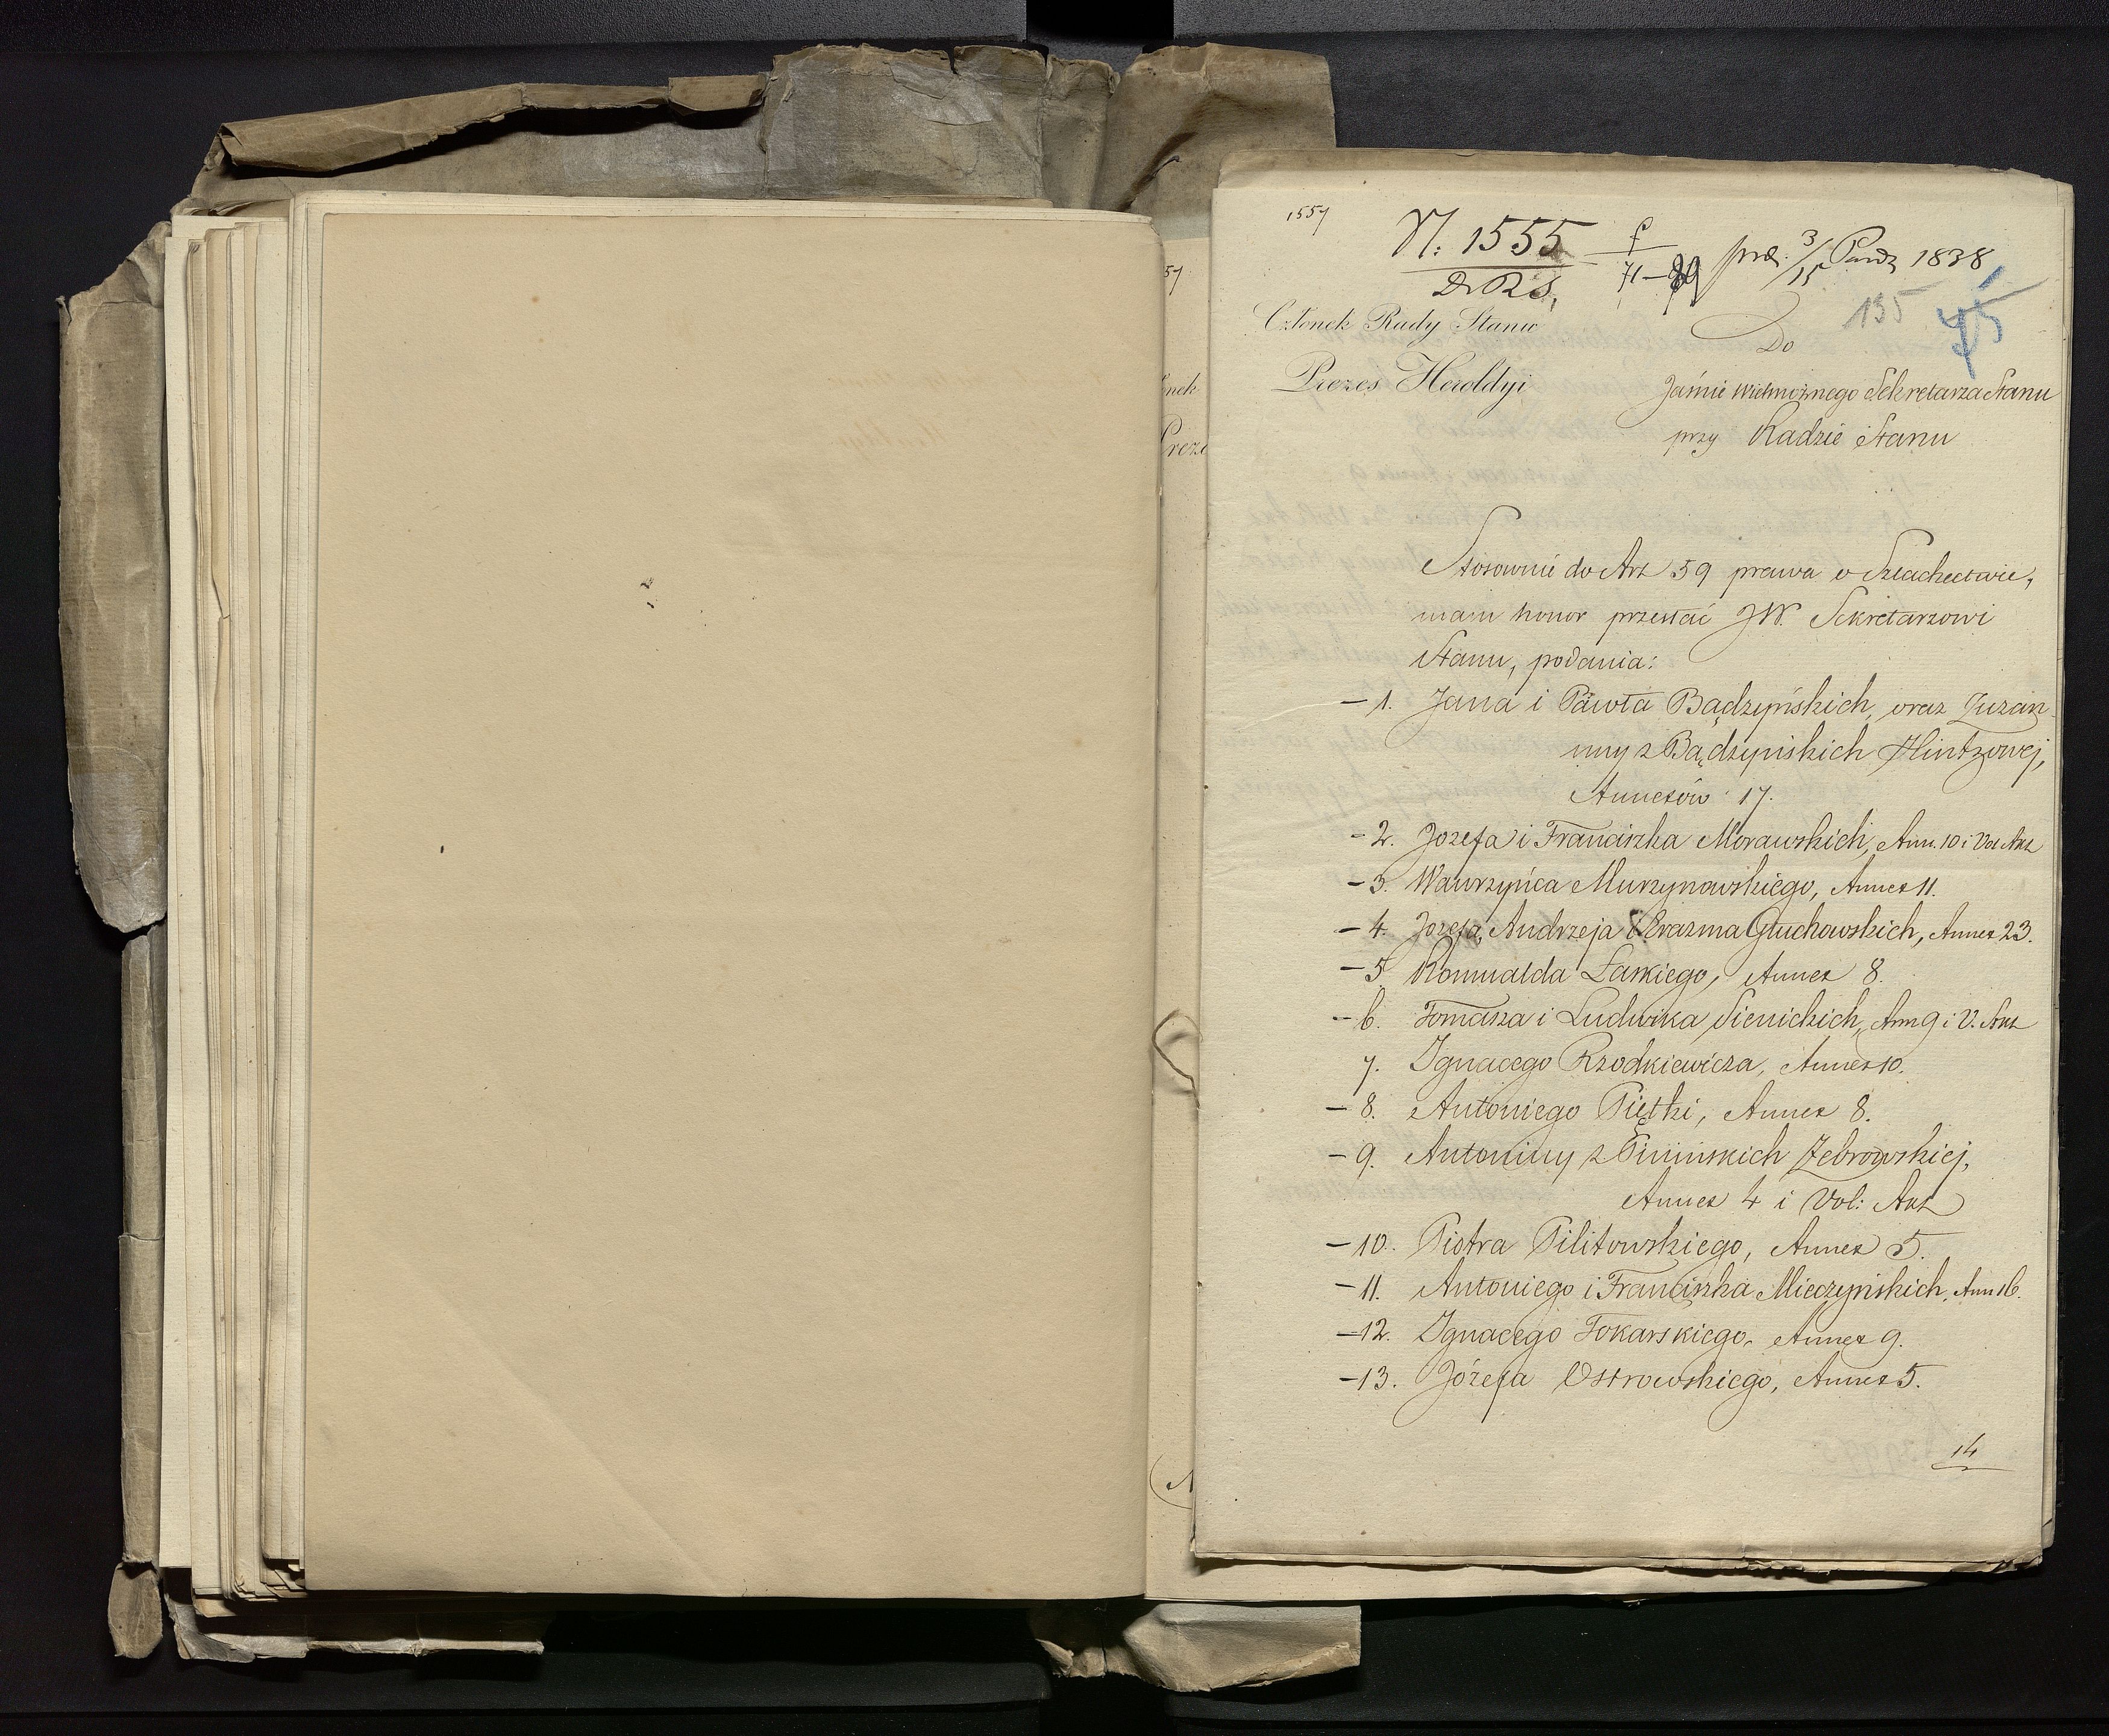 1557
N. 1555
D. R. S.
71–89
3/15 Paźdz 1838
135
75
Członek Rady Stanu
Prezes Heroldyi
Do
Jaśnie Wielmożnego Sekretarza Stanu
przy Radzie Stanu
Stosownie do Art 59 prawa o Szlachectwie,
mam honor przesłać JW. Sekretarzowi
Stanu, podania:
– 1. Jana i Pawła Bądzyńskich, oraz Zuzan
nny z Bądzyńskich Hintzowej,
Annexów 17.
– 2. Jozefa i Franciszka Morawskich, Ann. 10 i Vol Akt
– 3. Wawrzyńca Murzynowskiego, Annex 11.
– 4. Jozefa, Andrzeja i Erazma Głuchowskich, Annex 23.
– 5 Romualda Laskiego, Annex 8.
– 6. Tomasza i Ludwika Sienickich, Ann 9 i V. Akt
7. Ignacego Rzodkiewicza, Annex 10.
– 8. Antoniego Piętki, Annex 8.
– 9. Antoniny z Pinińskich Żebrowskiej,
Annex 4 i Vol: Akt
– 10. Piotra Pilitowskiego, Annex 5.
– 11. Antoniego i Franciszka Mieczyńskich, Ann 16.
– 12. Ignacego Tokarskiego, Annex 9.
– 13. Józefa Ostrowskiego, Annex 5.
14